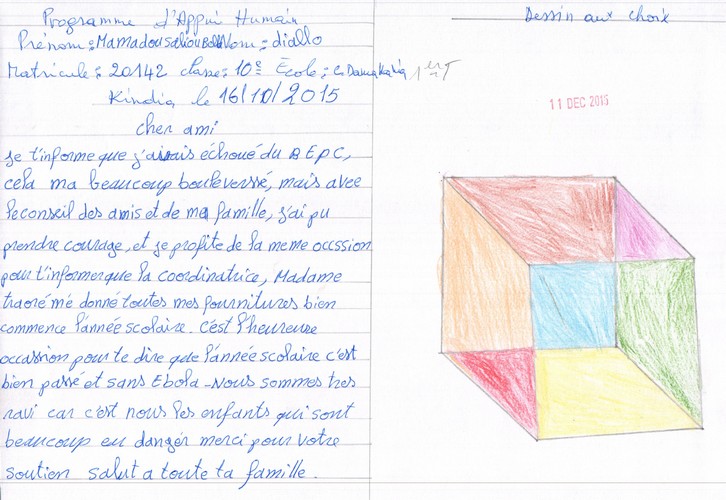 Programme d'Appui Humain
Prénom : Mamadou Saliou Bobo Nom : diallo
Matricule : 20142 classe : 10e École : C. Damakania 1er T
Kindia le 16/10/2015
cher ami
je t'informe que j'aisais échoué du BEPC,
cela ma beaucoup bouleverssé, mais avec
le conseil des amis et de ma famille, j'ai pu
prendre courage, et je profite de la meme occssion
pour t'informer que la coordinatrice, Madame
traoré me donné toutes mes fournitures bien
commence l'année scolaire. C'est l'heureuse
occassion pour te dire que l'année scolaire c'est
bien passé et sans Ebola - Nous sommes tres
ravi car c'est nous les enfants qui sont
beaucoup en danger merci pour votre
soutien salut a toute ta famille.
Dessin aux choix
11 DEC 2015